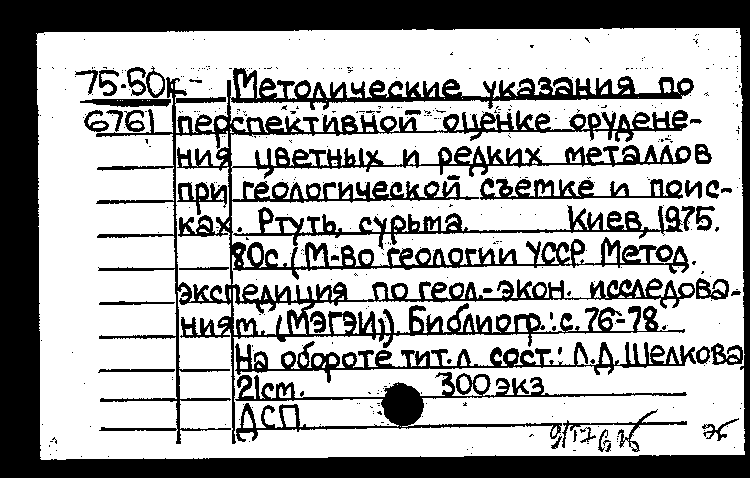 75-50к- Методические указания по
6761 перспективной оценке орудене-
ния цветных и редких металлов
при геологической съемке и поис-
ках. Ртуть, сурьма. Киев, 1975.
80с. (М-во геологии УССР. Метод.
экспедиция по геол.-экон. исследова-
ниям. (МЭГЭИ)). Библиогр.: с. 76-78.
На обороте тит. л. сост.: Л.Д. Шелкова
21 см. 300 экз.
ДСП.